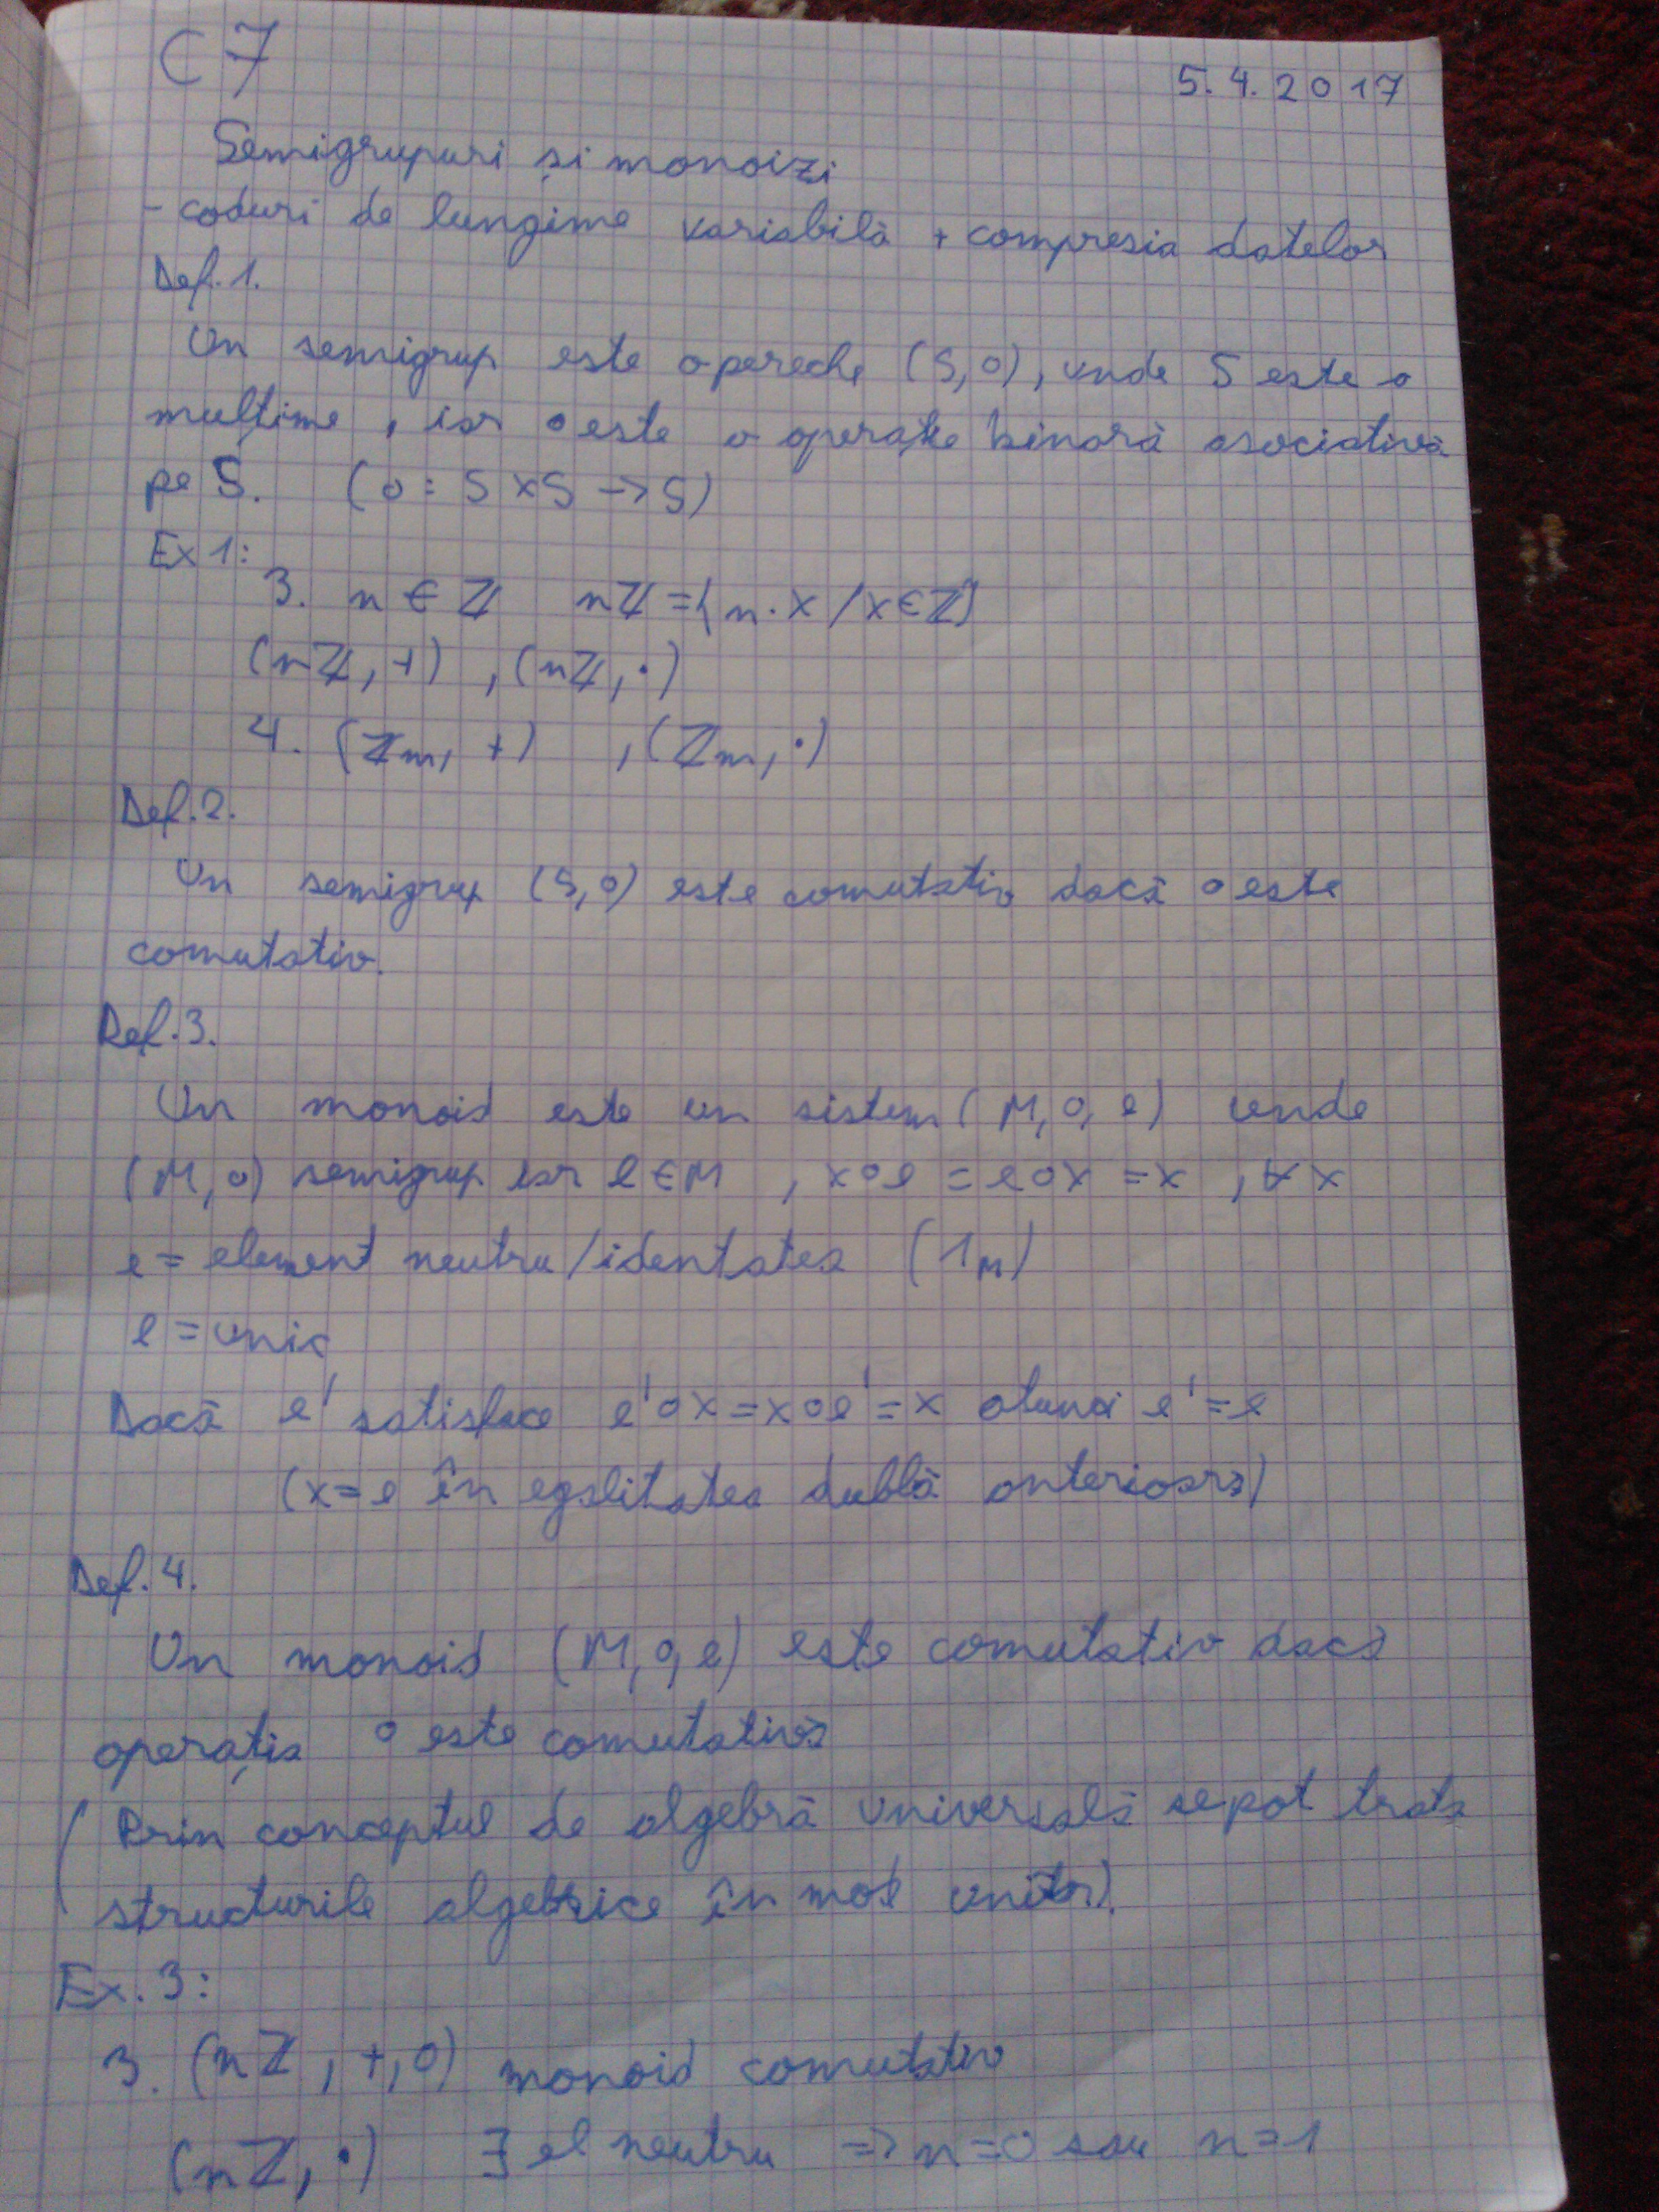 C7
5.4.2017
Semigrupuri și monoizi
- coduri de lungime variabilă + compresia datelor
Def.1.
Un semigrup este o pereche (S,∘), unde S este o
mulțime, iar ∘ este o operație binară asociativă
pe S. (∘: S×S → S)
Ex 1:
3. n ∈ ℤ nℤ = {n·x / x∈ℤ}
(nℤ, +) , (nℤ, ·)
4. (ℤm, +) , (ℤm, ·)
Def.2.
Un semigrup (S,∘) este comutativ dacă ∘ este
comutativ.
Def.3.
Un monoid este un sistem (M,∘,e) unde
(M,∘) semigrup iar e∈M , x∘e = e∘x = x , ∀x
e = element neutru/identatea (1M)
e = unic
Dacă e' satisface e'∘x = x∘e' = x atunci e' = e
(x=e în egalitatea dublă anterioară)
Def.4.
Un monoid (M,∘,e) este comutativ dacă
operația ∘ este comutativă
(Prin conceptul de algebră universală se pot trata
structurile algebrice în mod unitar).
Ex. 3:
3. (nℤ, +, 0) monoid comutativ
(nℤ, ·) ∃ el neutru => n=0 sau n=1